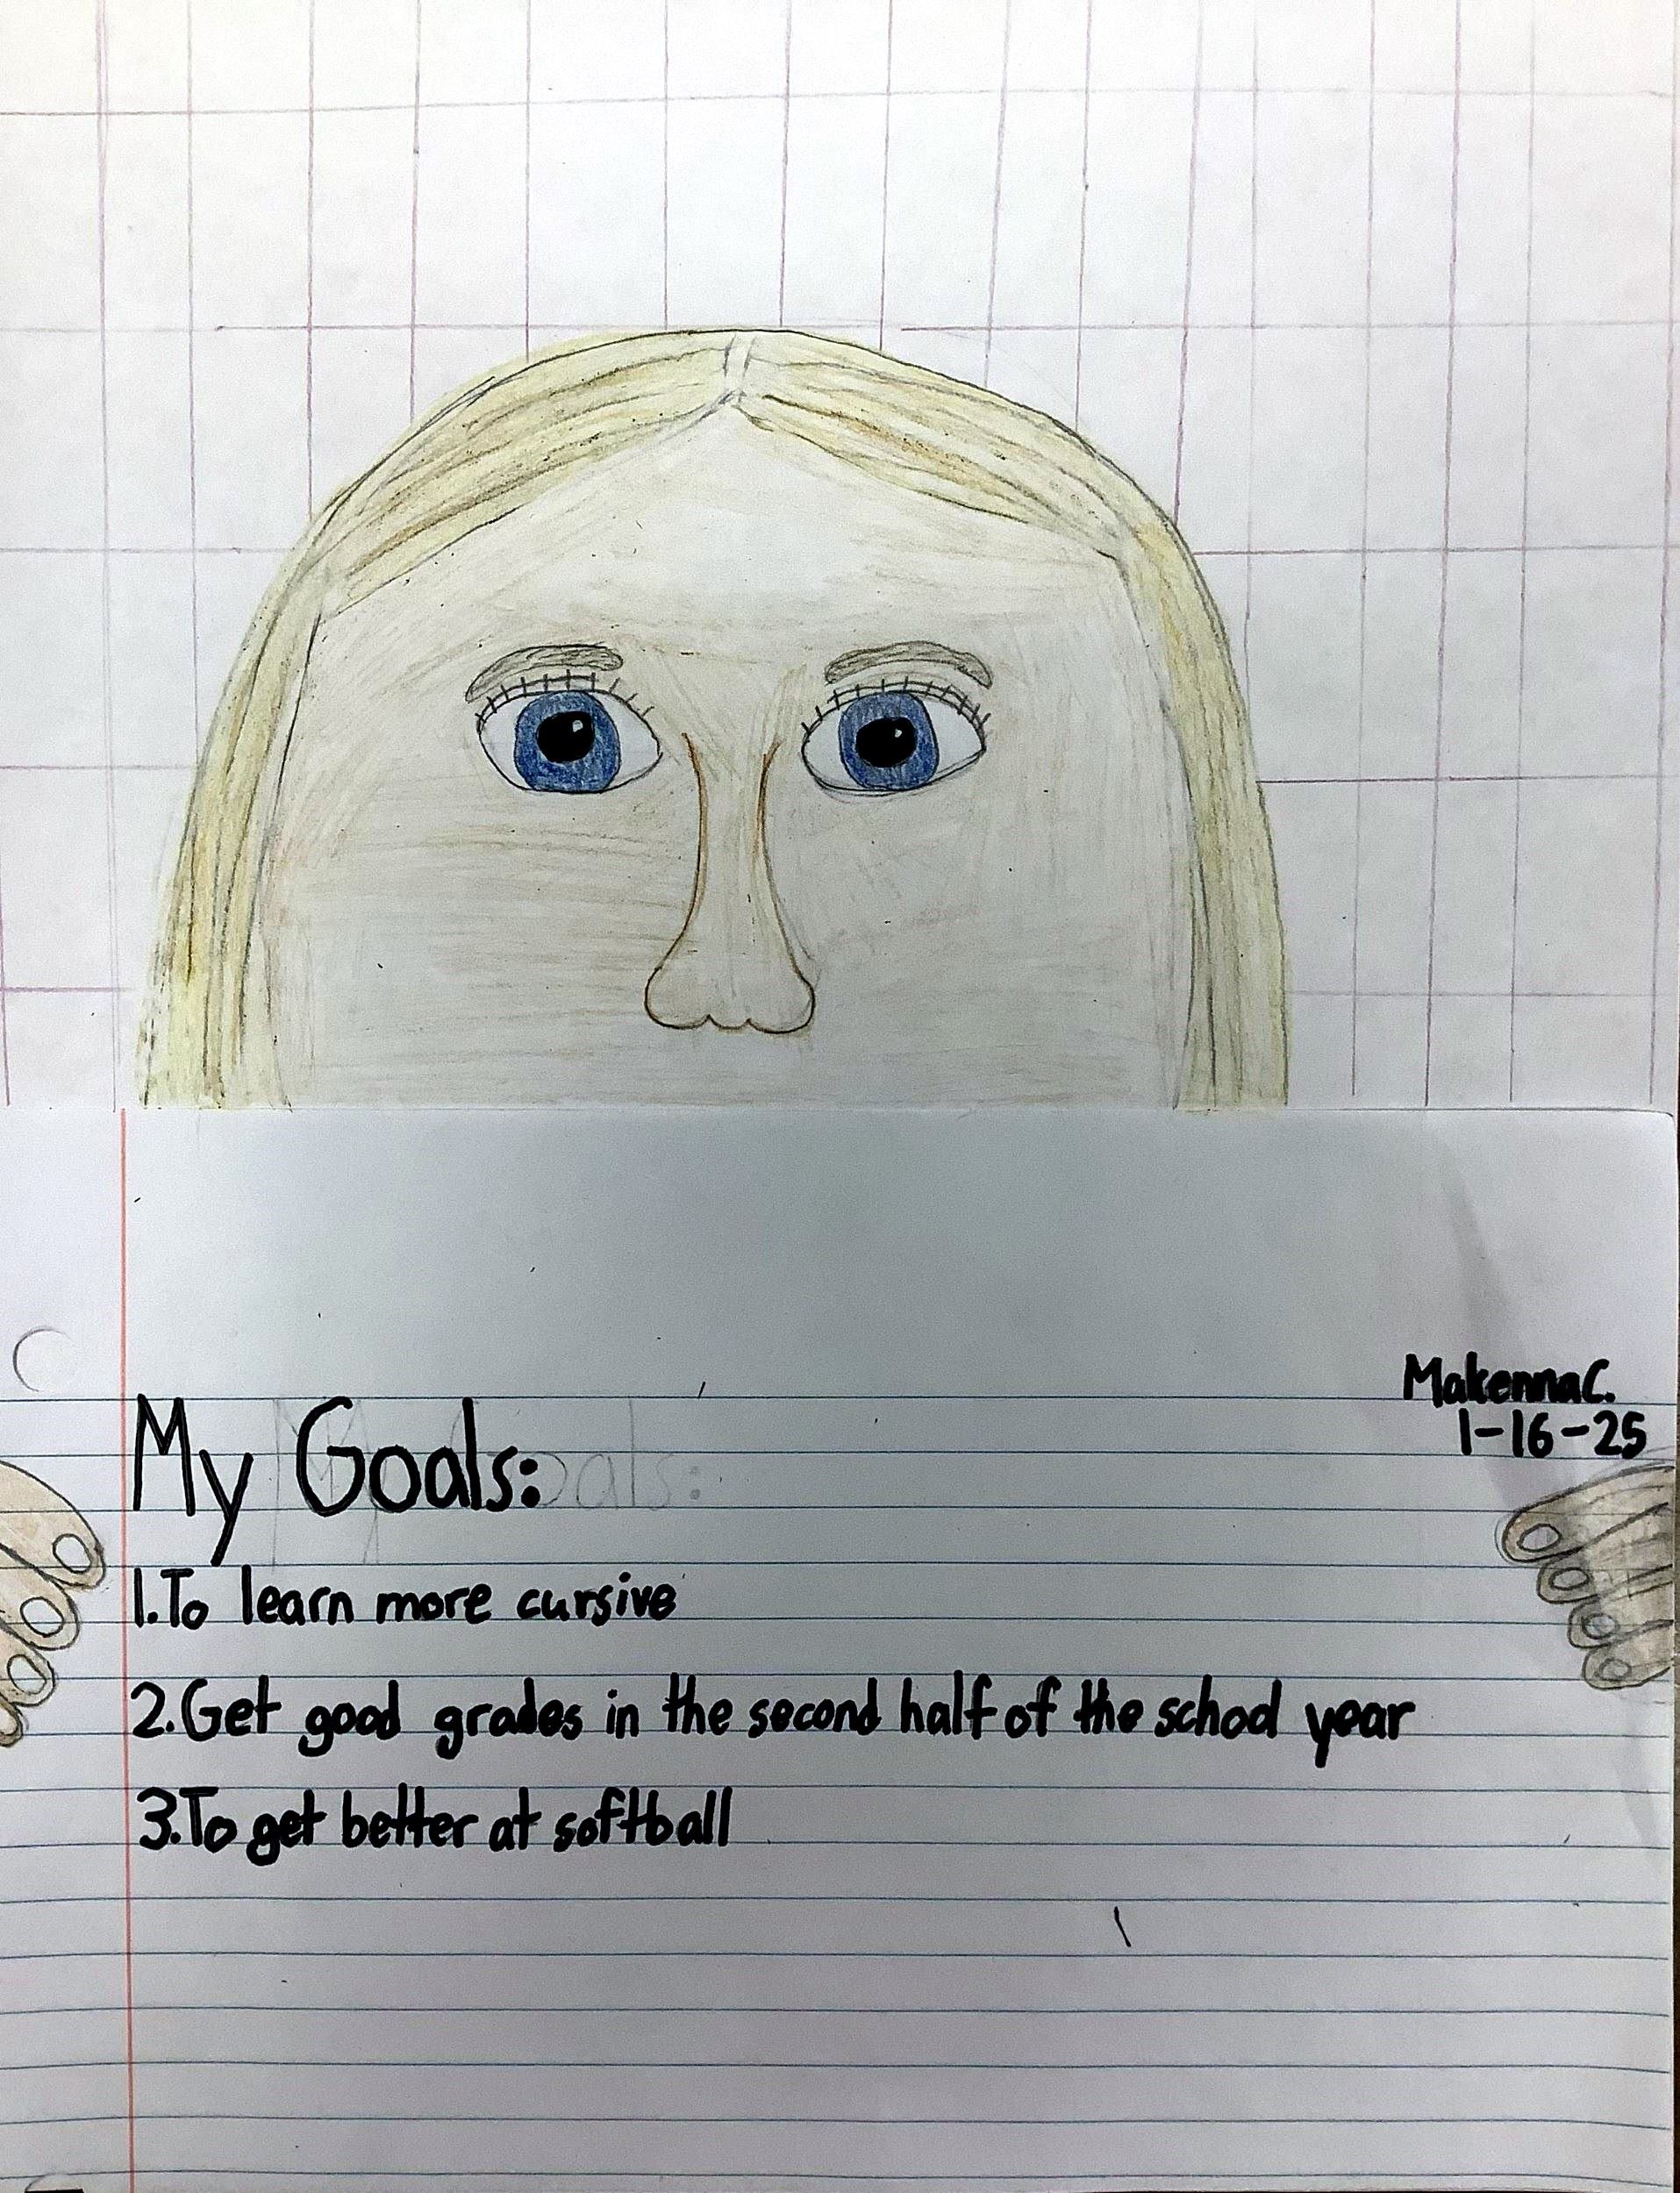 Makenna C.
1-16-25
My Goals:
1. To learn more cursive
2. Get good grades in the second half of the school year
3. To get better at softball